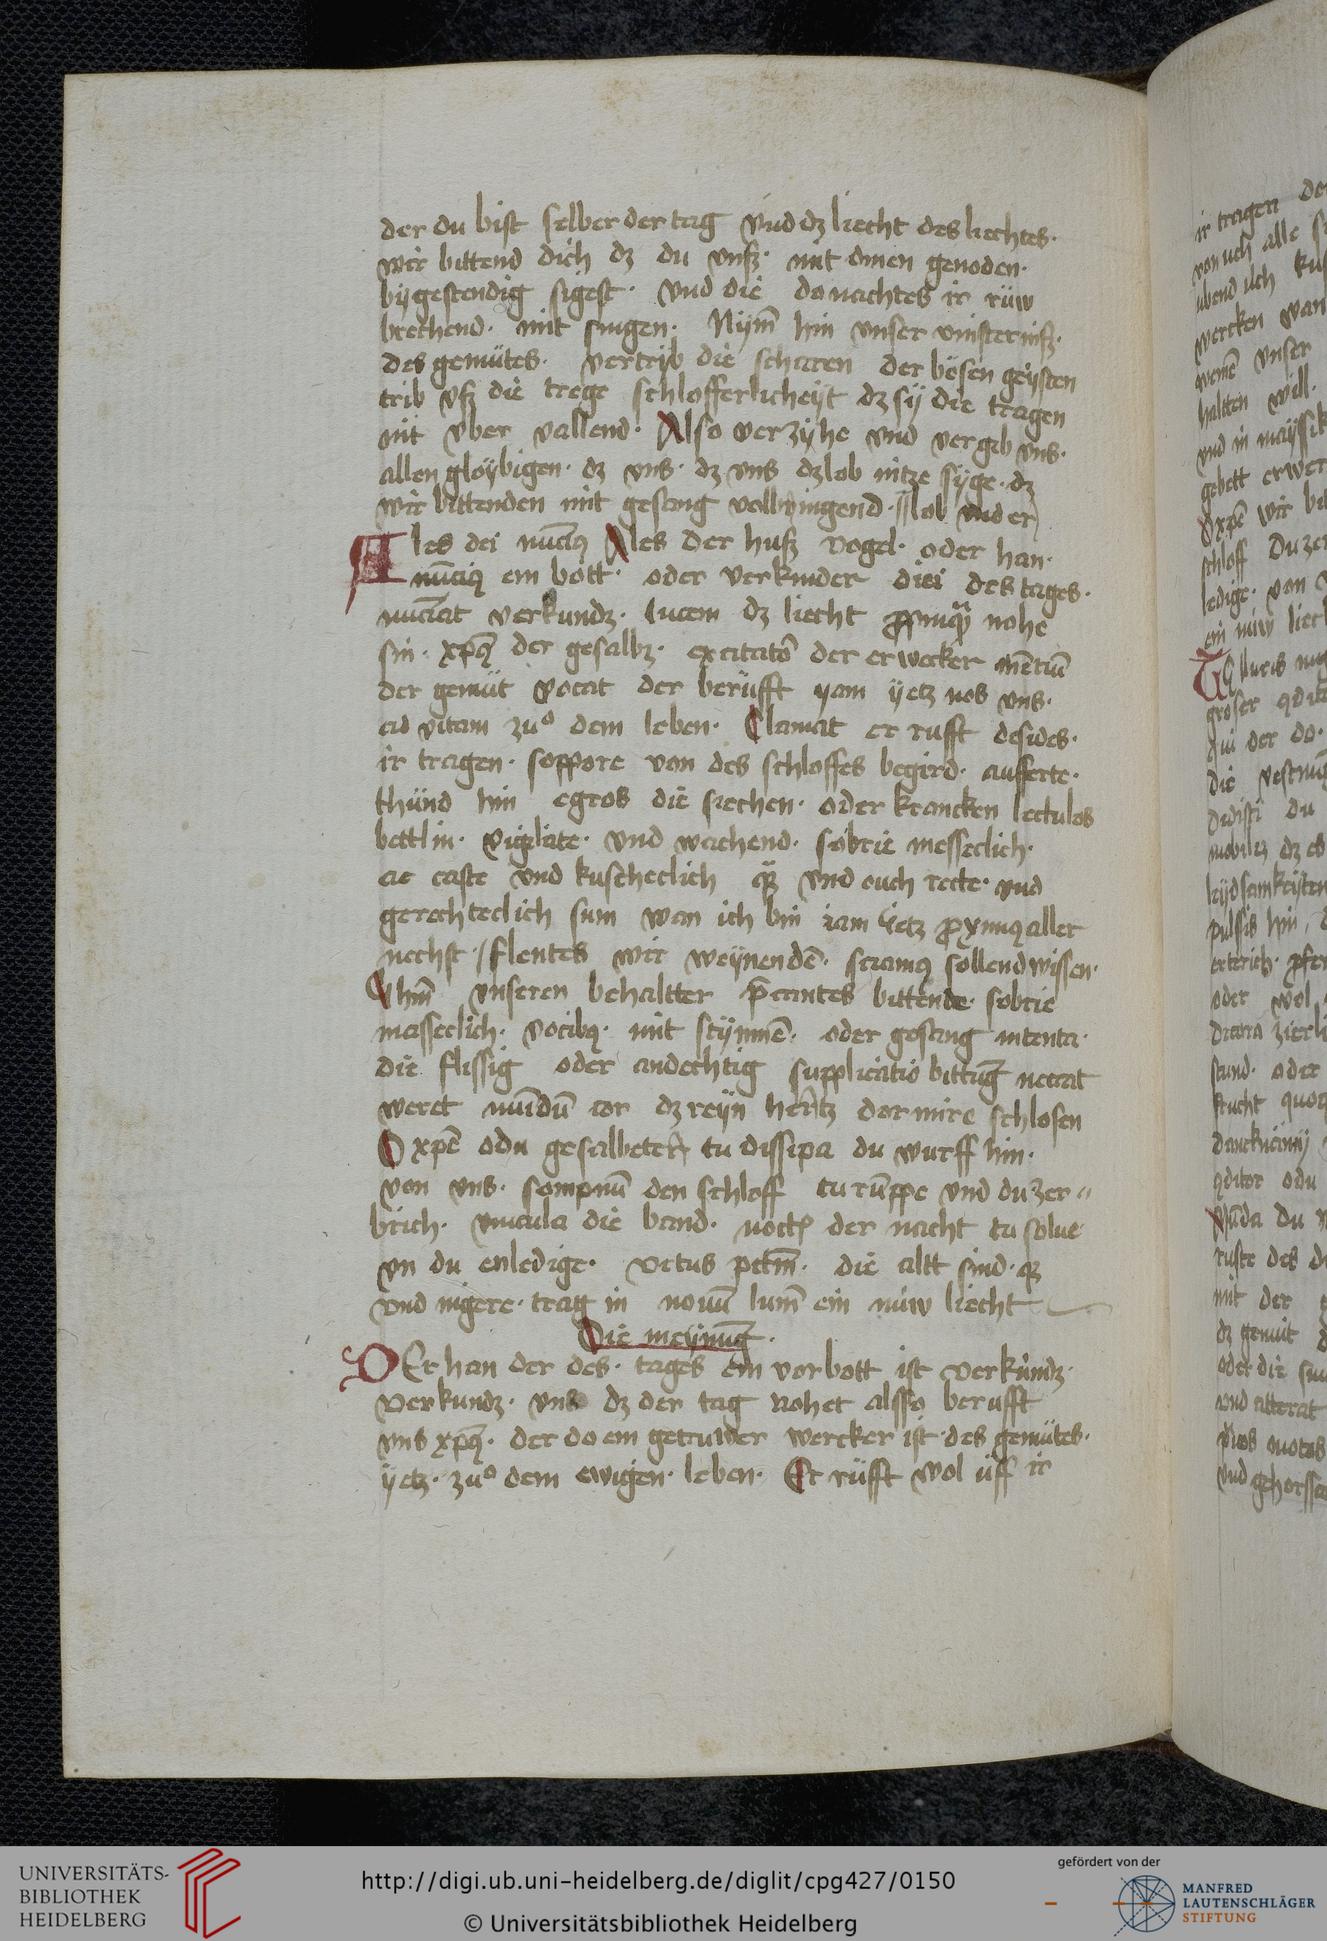 der du bist selber der tag vnd dz liecht des liechtes·
wir bittend dich dz du vnß· mit dinen genoden·
bygestendig sigest· vnd die do nachtes ir rüw
brechend· mit singen· Nym̄ hin vnser vinsterniß·
des gemütes· vertrib die scharen der bösen geysten
trib vß die trege schlofferlicheyt dz sy die tragen
nit vber vallend· Also verzyhe vnd vergib vns·
allen gloybigen· dz vns· dz vns dz lob nitze syge· dz
wir bittenden mit gesang vollbringend· lob vnd er
Ales dei nūciꝯ Ales der huß vogel· oder han·
nūciꝯ ein bott· oder verkinder diei des tages·
nucīat verkundz· lucem dz liecht nohe
sin· xp̄ꝯ der gesalbz· excitatō der erwecker mētiū
der gemüt vocat der berüfft yam yetz nos vns·
ad vitam zuͦ dem leben· Clamat er rufft desides·
ir tragen· soppore von des schloffes begird· aufferte·
thünd hin egros die siechen· oder krancken lectulos
bettlin· vigilate· vnd wachend· sobrie messeclich·
ac caste vnd kuscheclich qȝ vnd ouch recte· vnd
gerechteclich sum wan ich bin iam yetz ꝓxīmꝯ aller
nechst· flentes wir weynendē· sollend wissen·
Yhm̄ vnseren behaltter p̄cantes bittende· sobrie
masseclich· vocibꝯ· mit stymmē· oder gesang intenta·
die flissig oder andechtig supplicatio bittūg necat
weret mūdū cor dz reyn hertz dormire schlofen
O xp̄e o du gesalbeter tu dissipa du wurff hin·
von vns· sompnū den schloff tu rūppe vnd du zer〃
brich· vincula die band· noctꝭ der nacht tu solue
vn du enledige· vetus petm̄· die altt sind· qȝ
vnd ingere· trag in nouū lum̄ ein nüw liecht
Die meynūg·
DEr han der des· tages ein vorbott ist verkündz·
verkundz· vns dz der tag nohet alsso berufft
vns xp̄ꝯ· der do ein getruwer wercker ist des gemütes·
yetz· zuͦ dem ewigen· leben· Er rüfft wol üff ir
ir tragen
von uch alle
wercken
vnser
haltten will·
gebett
O xp̄e wir
schloff du zer
ledige· von
ein nüw liech
groser
qui der do·
die
du
mobiles dz
pulsis hin
oder wol
oder
quoq
du
des
mit der
dz gemüt
oder die
vnd
http://digi.ub.uni-heidelberg.de/diglit/cpg427/0150
© Universitätsbibliothek Heidelberg
UNIVERSITÄTS-
BIBLIOTHEK
HEIDELBERG
gefördert von der
MANFRED
LAUTENSCHLÄGER
STIFTUNG